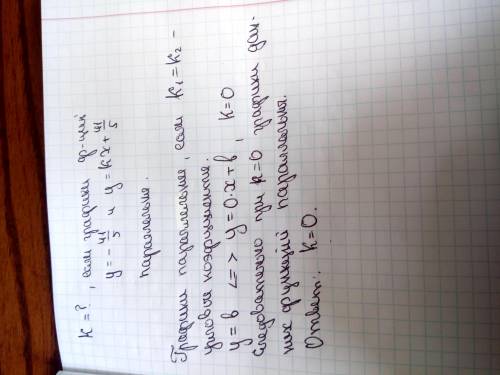 k = ? , если графики ф-ций
y = - 41/5 и y = kx + 41/5
параллельные.
Графики параллельные, если k₁ = k₂ -
угловые коэффициенты.
y = b <=> y = 0·x + b , k = 0
Следовательно при k = 0 графики дан-
ных функций параллельны.
Ответ: k = 0.